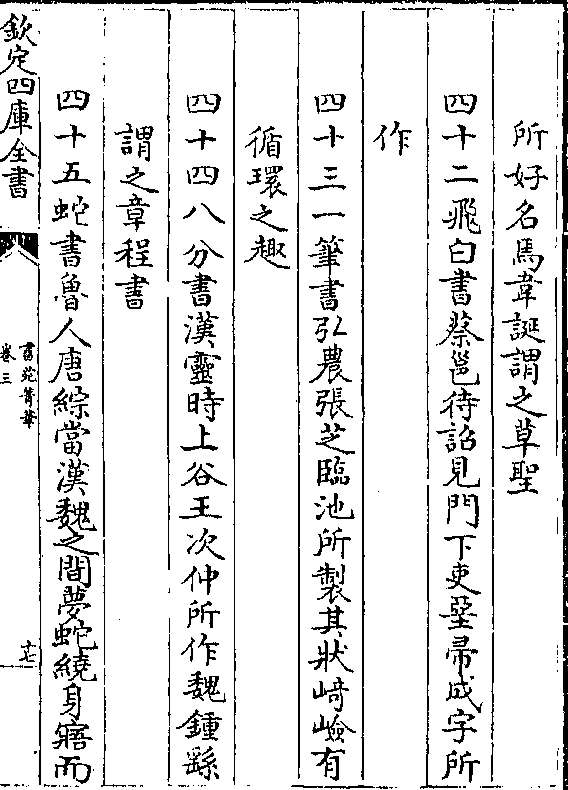 所好名馬韋誕謂之草聖
四十二飛白書蔡邕待詔見門下吏堊帚成字所
作
四十三一筆書弘農張芝臨池所製其狀崎嶮有
循環之趣
四十四八分書漢靈時上谷王次仲所作魏鍾繇
謂之章程書
四十五蛇書魯人唐綜當漢魏之間夢蛇繞身寤而
欽定四庫全書
書苑菁華
卷三